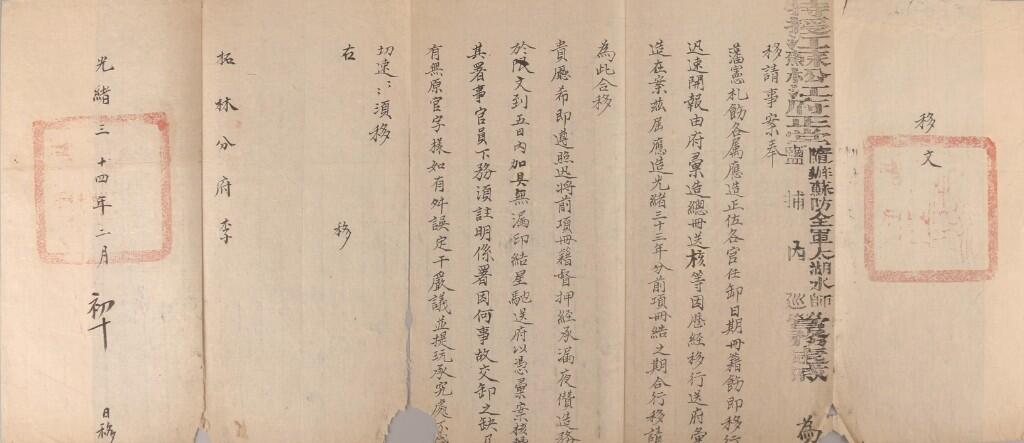 移文
隨辦蘇防全軍太湖水師
鹽捕內巡
為
移請事案奉
藩憲札飭各属應造正佐各官任卸日期冊籍飭即移行
迅速開報由府彙造總冊送核等因歷經移行送府彙
造在案茲屆應造光緒三十三年分前項冊結之期合行移請
為此合移
貴廳希即遵照迅將前項冊籍督押經承漏夜儹造務
於限文到五日內加具無漏印結星馳送府以憑彙案核
其署事官員下務須註明係署因何事故交卸之缺
有無原官字樣如有舛誤定干嚴議並提玩承究處不
切速:須移
右移
柘林分府李
光緒三十四年二月初十日移